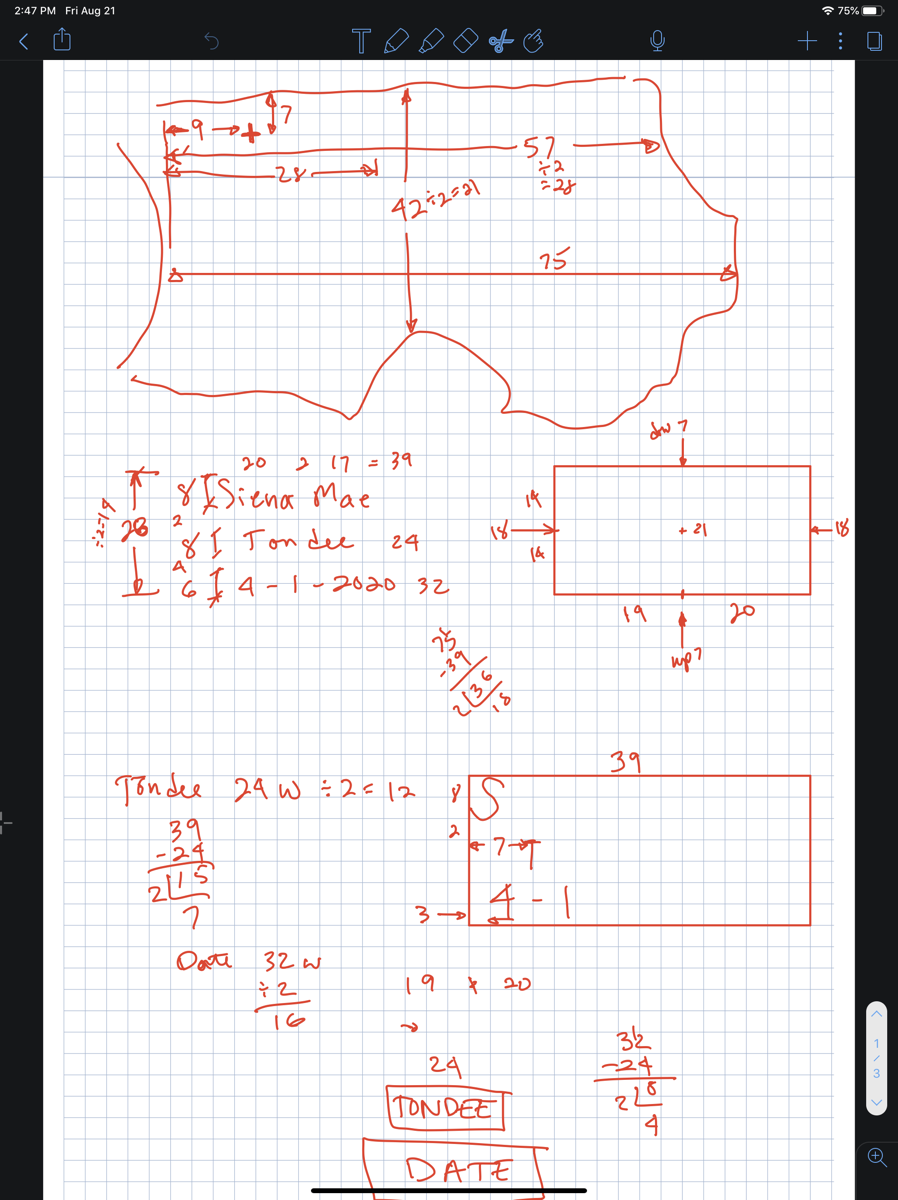 2:47 PM Fri Aug 21
75%
T
9
7
57
÷2
=28
28
42÷2=21
75
20 2 17 = 39
8 Siena Mae
÷2=14
28
2
8 Tondee 24
4
6 4-1-2020 32
dw 7
14
18
14
+ 21
18
19 20
up 7
75
-39
2 36
18
39
Tondee 24 W ÷2= 12
8 S
2
7 T
39
-24
2 15
7
3
4-1
Date 32 W
÷2
16
19 * 20
24
TONDEE
DATE
32
-24
2 8
4
1
/
3